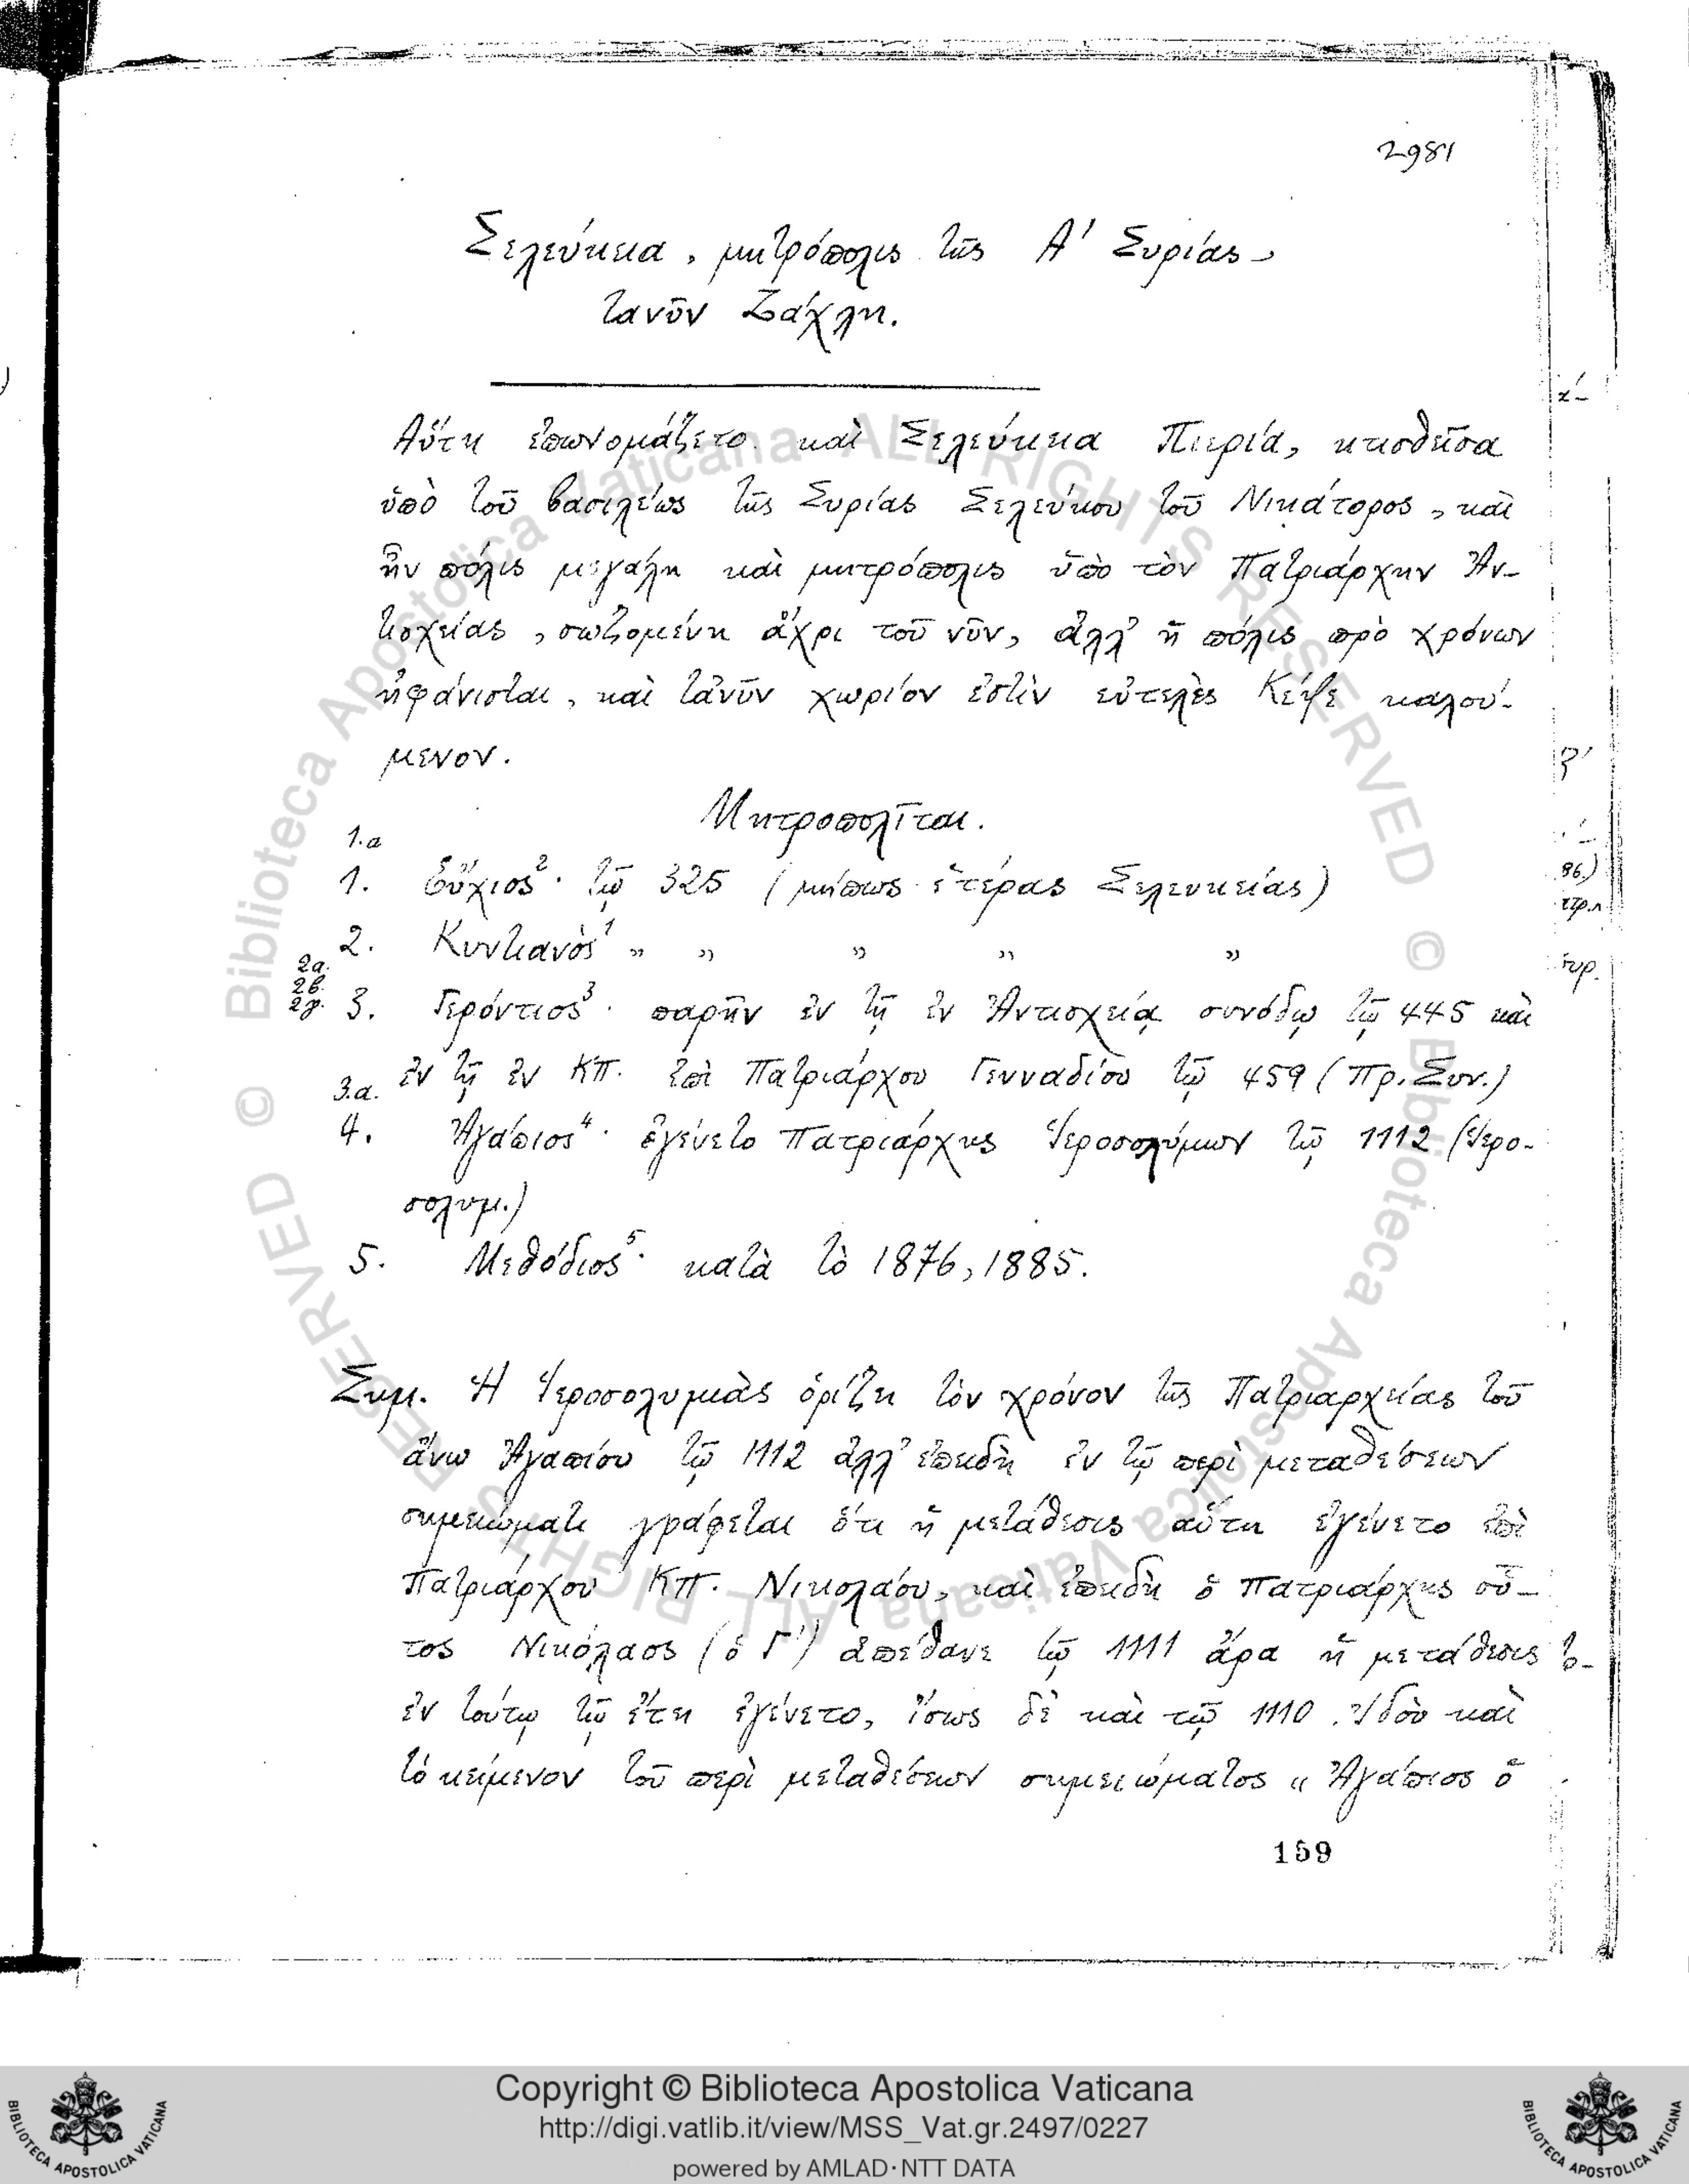 2981
Σελεύκεια, μητρόπολις τῆς Α' Συρίας,
τανῦν Ζάχλη.
Αὕτη ἐπωνομάζετο καὶ Σελεύκεια Πιερία, κτισθεῖσα
ὑπὸ τοῦ βασιλέως τῆς Συρίας Σελεύκου τοῦ Νικάτορος, καὶ
ἦν πόλις μεγάλη καὶ μητρόπολις ὑπὸ τὸν Πατριάρχην Ἀν-
τιοχείας, σωζομένη ἄχρι τοῦ νῦν, ἀλλ' ἡ πόλις πρὸ χρόνων
ἠφάνισται, καὶ τανῦν χωρίον ἐστὶν εὐτελὲς Κέψε καλού-
μενον.
Μητροπολῖται.
1.α
1. Εὔχιος² · τῷ 325 (μήπως ἑτέρας Σελευκείας)
2. Κυντιανὸς¹ „ „ „ „ „
2α.
2β.
2γ. 3. Γερόντιος³ · παρῆν ἐν τῇ ἐν Ἀντιοχείᾳ συνόδῳ τῷ 445 καὶ
3.α. ἐν τῇ ἐν ΚΠ. ἐπὶ Πατριάρχου Γενναδίου τῷ 459 (Πρ. Συν.)
4. Ἀγάπιος⁴ · ἐγένετο Πατριάρχης Ἱεροσολύμων τῷ 1112 (Ἱερο-
σολυμ.)
5. Μεθόδιος⁵ · κατὰ τὸ 1876, 1885.
Σημ. Ἡ Ἱεροσολυμιὰς ὁρίζει τὸν χρόνον τῆς Πατριαρχείας τοῦ
ἄνω Ἀγαπίου τῷ 1112 ἀλλ' ἐπειδὴ ἐν τῷ περὶ μεταθέσεων
σημειώματι γράφεται ὅτι ἡ μετάθεσις αὕτη ἐγένετο ἐπὶ
Πατριάρχου ΚΠ. Νικολάου, καὶ ἐπειδὴ ὁ πατριάρχης οὗ-
τος Νικόλαος (ὁ Γ') ἀπέθανε τῷ 1111 ἄρα ἡ μετάθεσις
ἐν τούτῳ τῷ ἔτει ἐγένετο, ἴσως δὲ καὶ τῷ 1110. Ἰδοὺ καὶ
τὸ κείμενον τοῦ περὶ μεταθέσεων σημειώματος « Ἀγάπιος ὁ
159
Copyright © Biblioteca Apostolica Vaticana
http://digi.vatlib.it/view/MSS_Vat.gr.2497/0227
powered by AMLAD·NTT DATA
BIBLIOTECA APOSTOLICA VATICANA
BIBLIOTECA APOSTOLICA VATICANA
© Biblioteca Apostolica Vaticana ALL RIGHTS RESERVED © Biblioteca Apostolica Vaticana ALL RIGHTS RESERVED